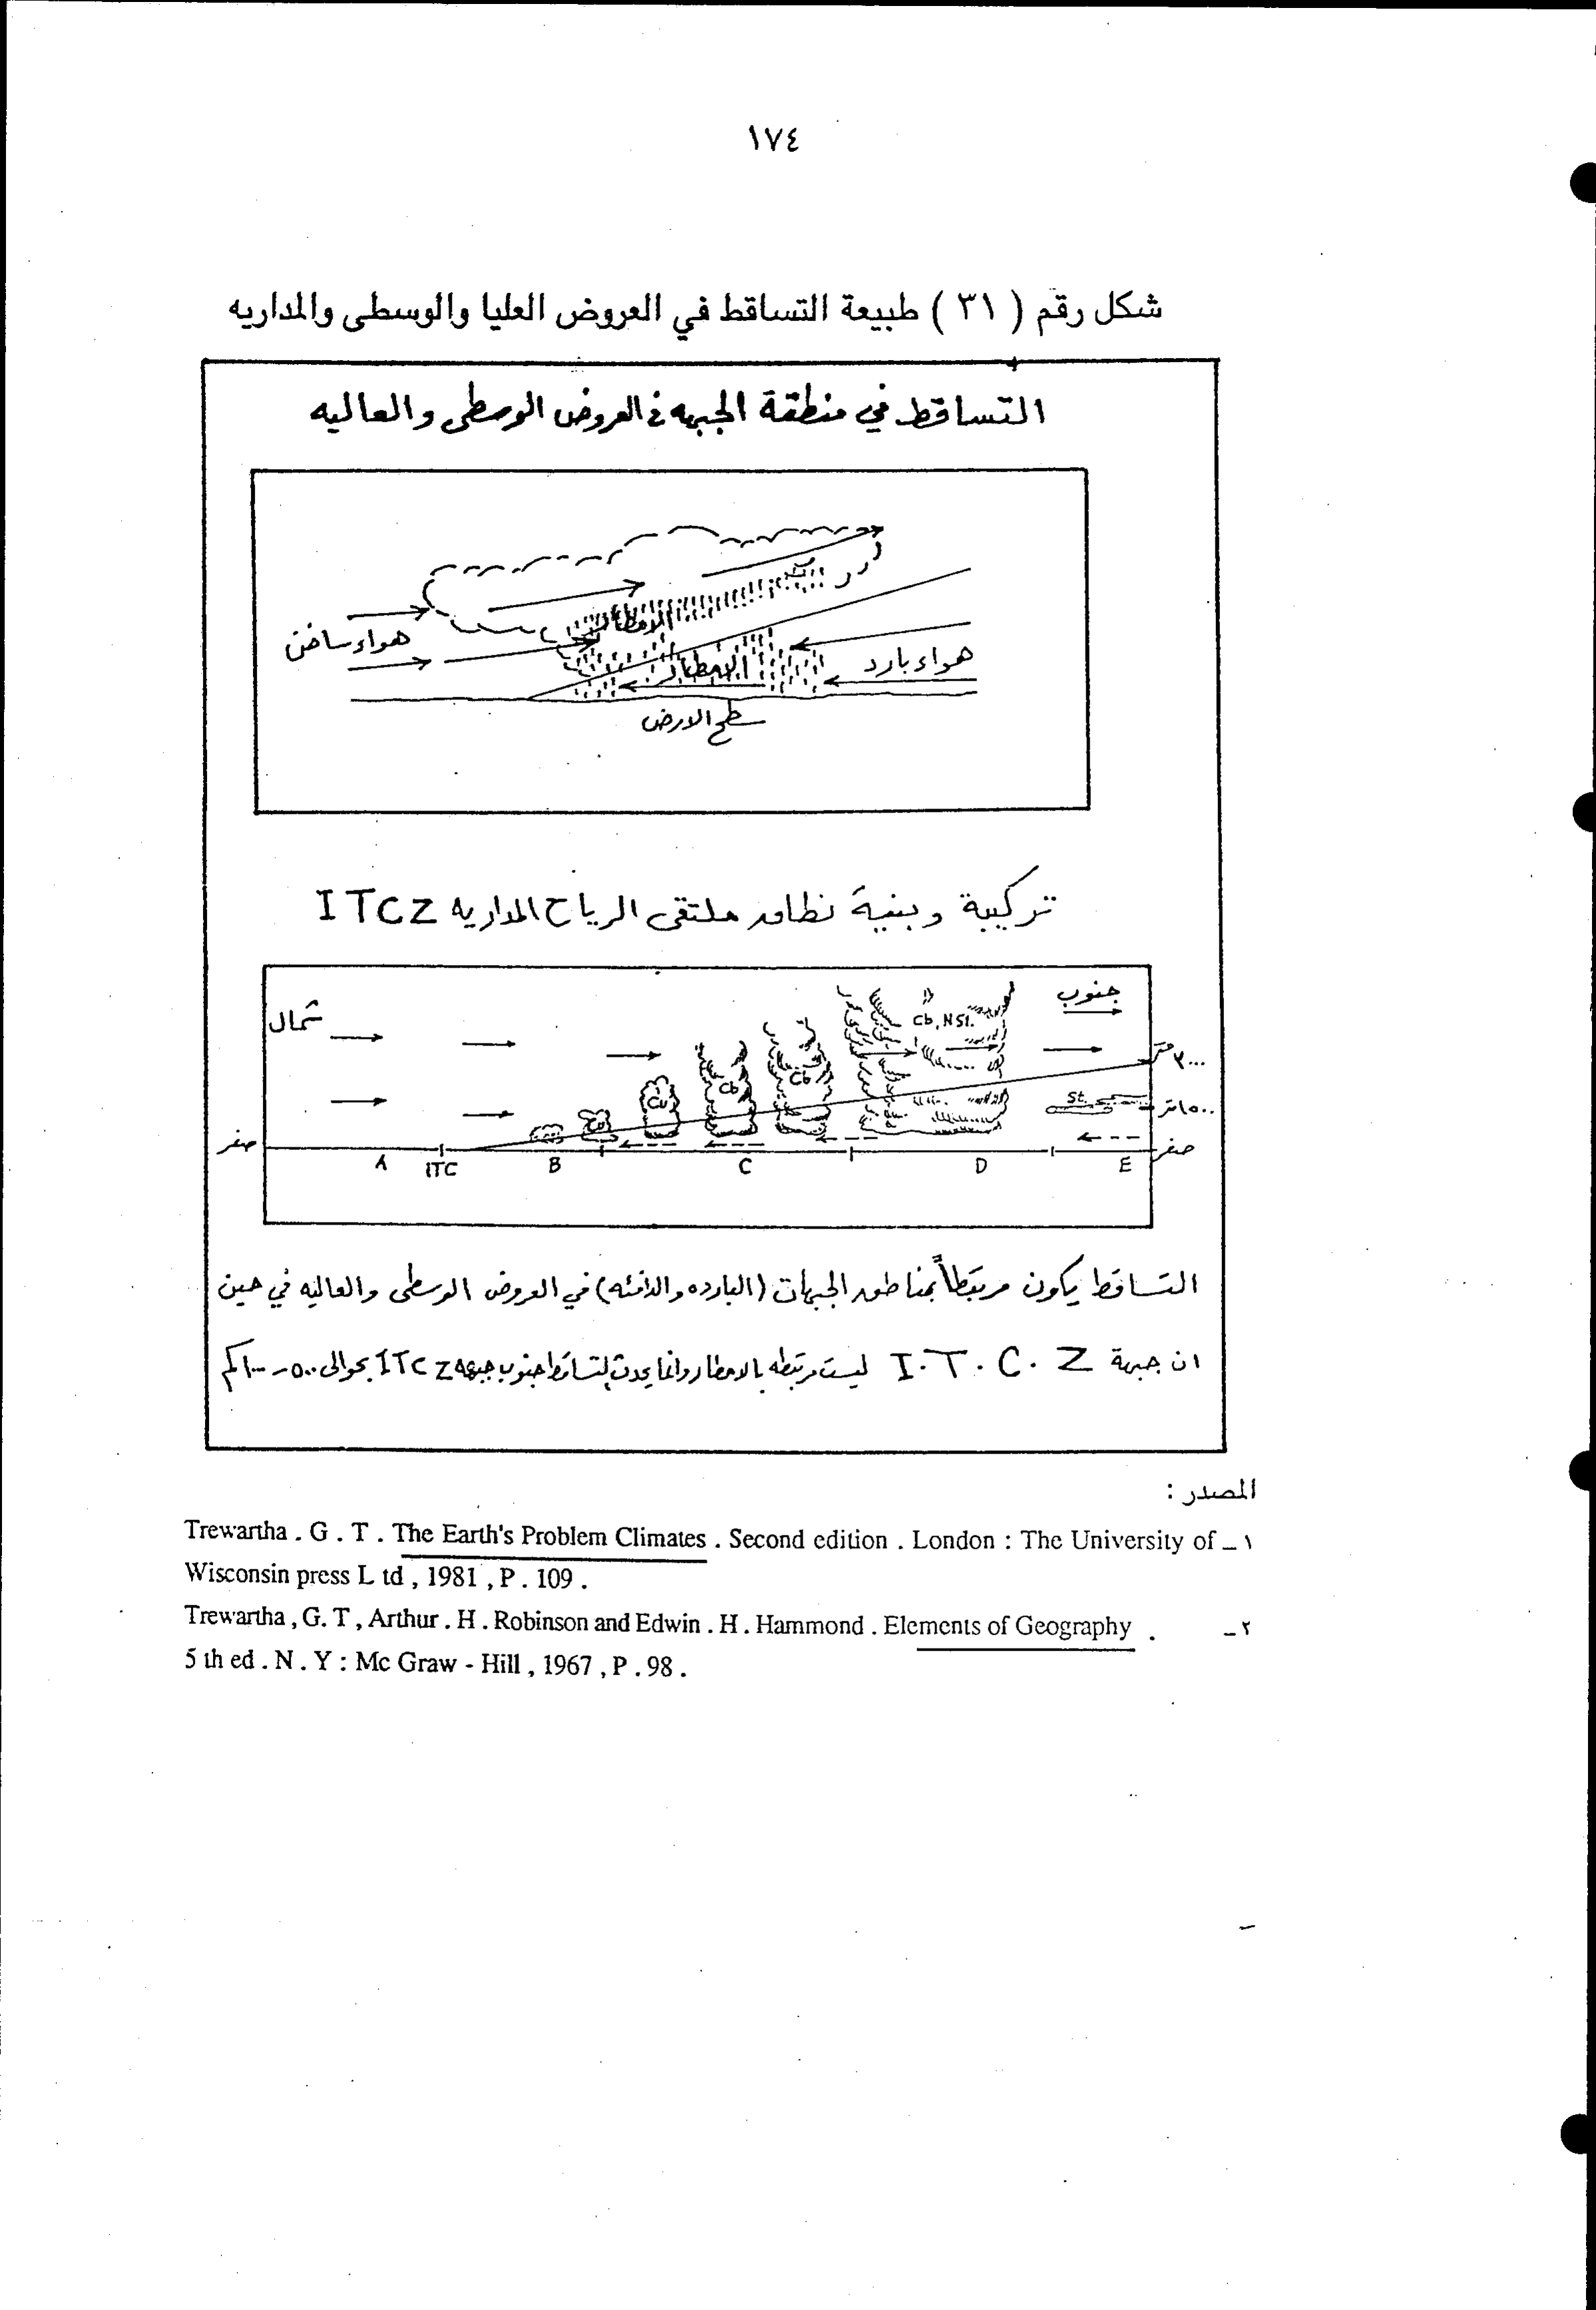 ١٧٤
شكل رقم ( ٣١ ) طبيعة التساقط في العروض العليا والوسطى والمداريه
التساقط في منطقة الجبهه في العروض الوسطى والعاليه
الامطار
هواء ساخن
الامطار
هواء بارد
سطح الارض
تركيبة وبنية نظام ملتقى الرياح المداريه ITCZ
شمال
جنوب
Cb, NSt.
٣٠٠٠ متر
Cu
Cb
Cb
Cu
St.
١٥٠٠ متر
صفر
صفر
A ITC B C D E
التساقط يكون مرتبطاً بمناطق الجبهات (البارده والدافئه) في العروض الوسطى والعاليه في حين
ان جبهة I.T.C.Z ليست مرتبطه بالامطار وانما يحدث التساقط جنوب جبهة ITCZ بحوالى ٥٠٠ـ١٠٠٠كم
المصدر :
Trewartha . G . T . The Earth's Problem Climates . Second edition . London : The University of ـ ١
Wisconsin press L td , 1981 , P . 109 .
Trewartha , G. T , Arthur . H . Robinson and Edwin . H . Hammond . Elements of Geography . ـ ٢
5 th ed . N . Y : Mc Graw - Hill , 1967 , P . 98 .